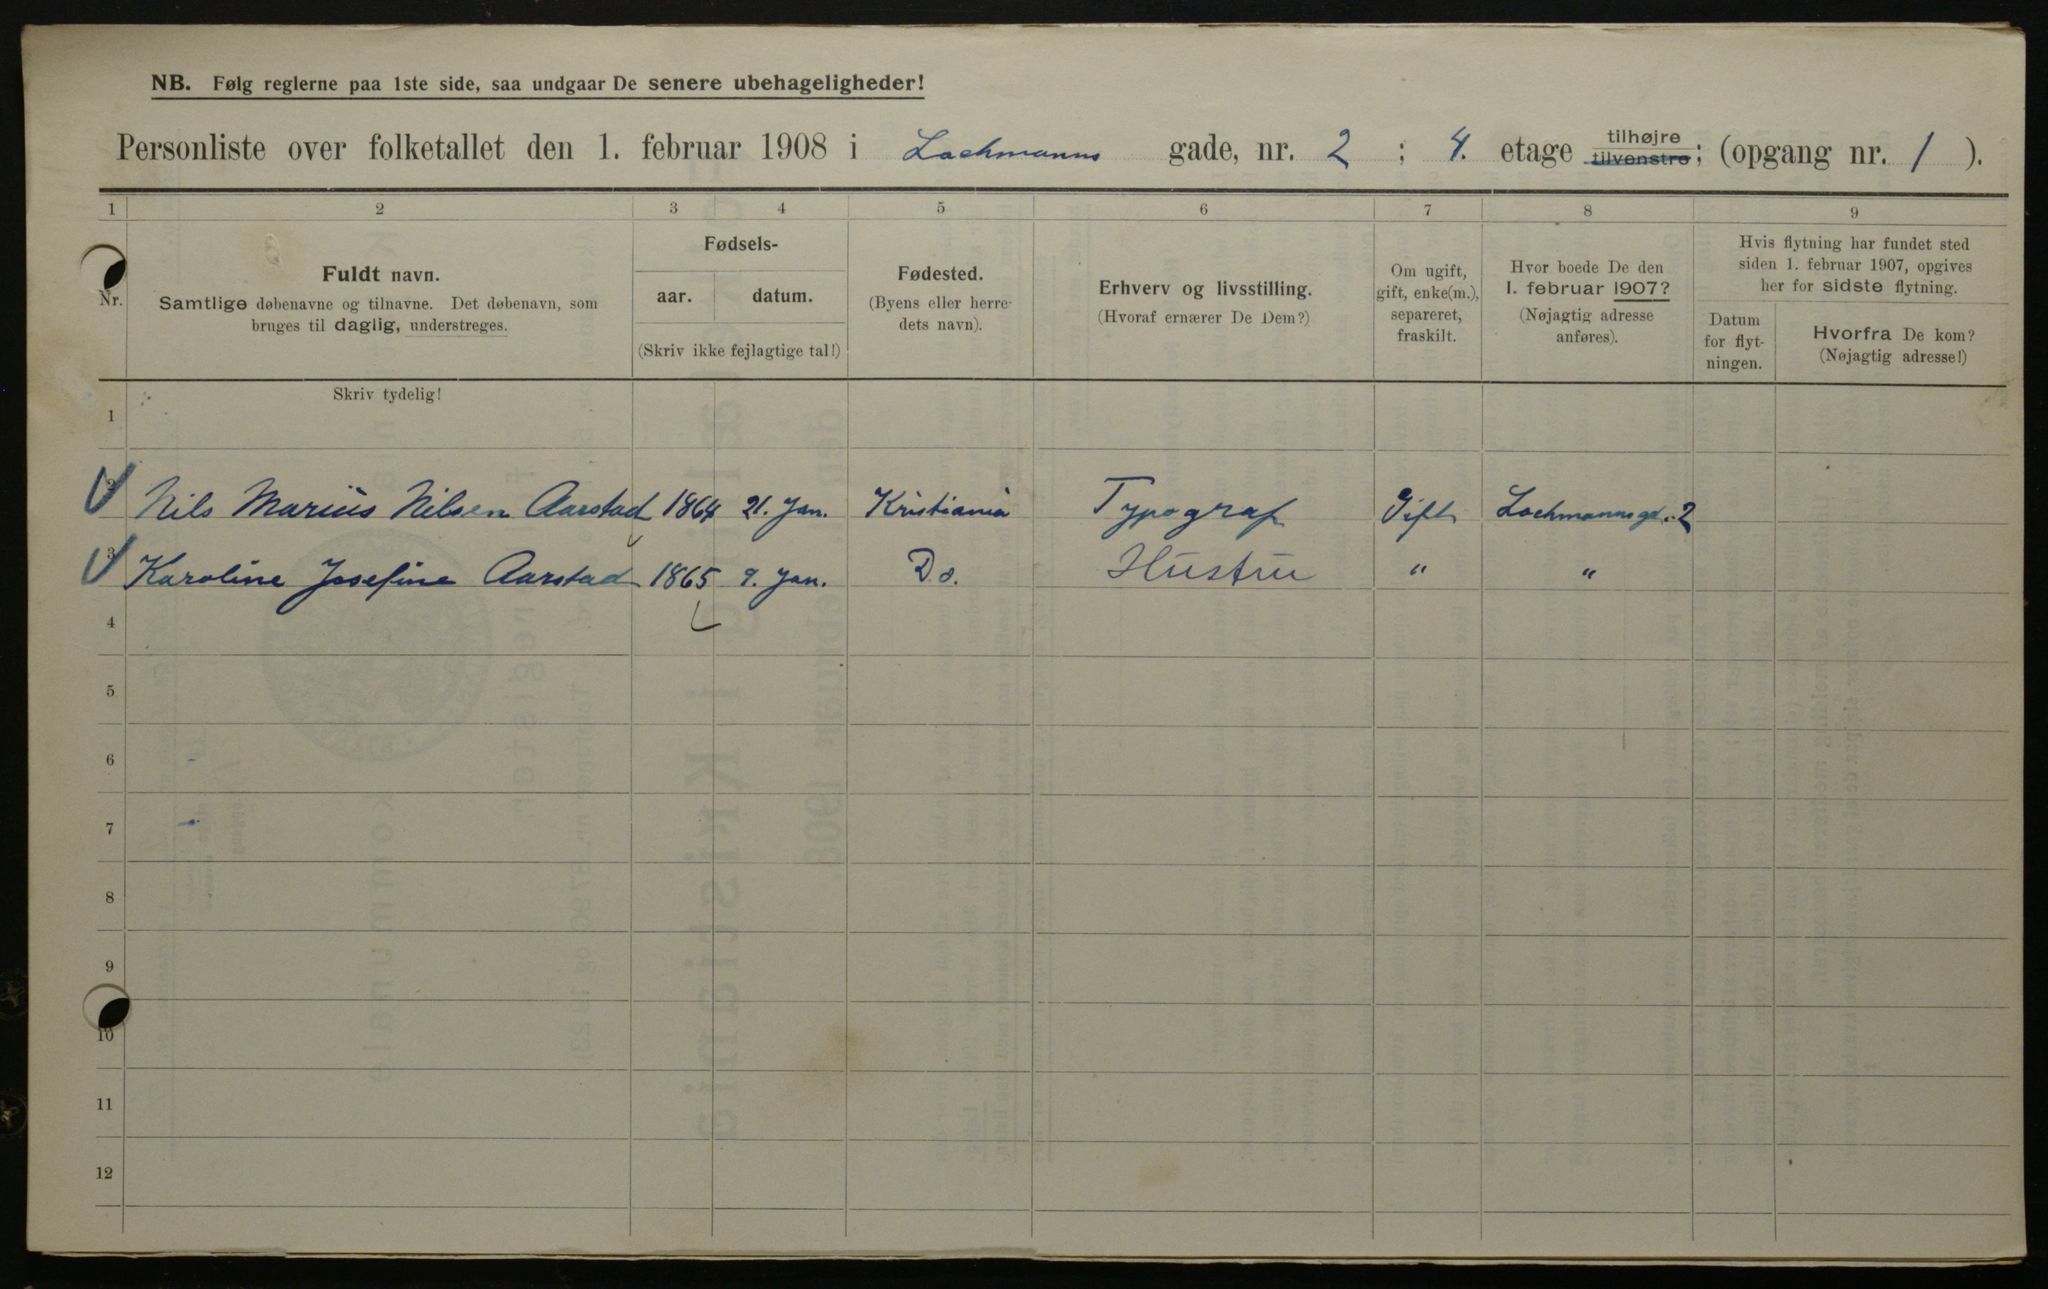 NB. Følg reglerne paa 1ste side, saa undgaar De senere ubehageligheder!
Personliste over folketallet den 1. februar 1908 i Lochmanns gade, nr. 2 ; 4. etage tilhøjre tilvenstre; (opgang nr. 1 ).
1 2 3 4 5 6 7 8 9
Nr.
Fuldt navn.
Samtlige døbenavne og tilnavne. Det døbenavn, som
bruges til daglig, understreges.
Fødsels-
aar. datum.
(Skriv ikke fejlagtige tal!)
Fødested.
(Byens eller herre-
dets navn).
Erhverv og livsstilling.
(Hvoraf ernærer De Dem?)
Om ugift,
gift, enke(m.),
separeret,
fraskilt.
Hvor boede De den
1. februar 1907?
(Nøjagtig adresse
anføres).
Hvis flytning har fundet sted
siden 1. februar 1907, opgives
her for sidste flytning.
Datum
for flyt-
ningen.
Hvorfra De kom?
(Nøjagtig adresse!)
Skriv tydelig!
1
2 Nils Marius Nilsen Aarstad 1864 21. Jan. Kristiania Typograf Gift Lochmannsgd. 2
3 Karoline Josefine Aarstad 1865 9. Jan. Do. Hustru " "
4
5
6
7
8
9
10
11
12